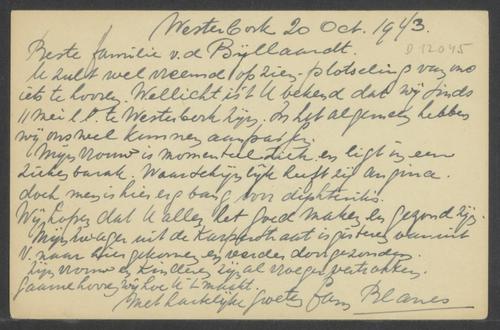 Westerbork 20 Oct. 1943.
D 12045
Beste familie v.d Byllaardt.
U zult wel vreemd op zien plotseling van ons
iets te hooren. Wellicht is 't U bekend dat wij sinds
11 mei l.l. te Westerbork zijn. In het algemeen hebben
wij ons wel kunnen aanpassen.
Mijn vrouw is momenteel ziek en ligt in een
ziekenbarak. Waarschijnlijk heeft zij angina.
doch men is hier erg bang voor diphteritis.
Wij hopen dat U allen het goed maken en gezond zijn.
Mijn zwager uit de Karperstraat is gisteren vanuit
V. naar hier gekomen en verder doorgezonden.
Zijn vrouw en kinderen zijn al vroeger vertrokken.
Gaarne hooren wij hoe U 't maakt.
Met hartelijke groeten fam Blanes